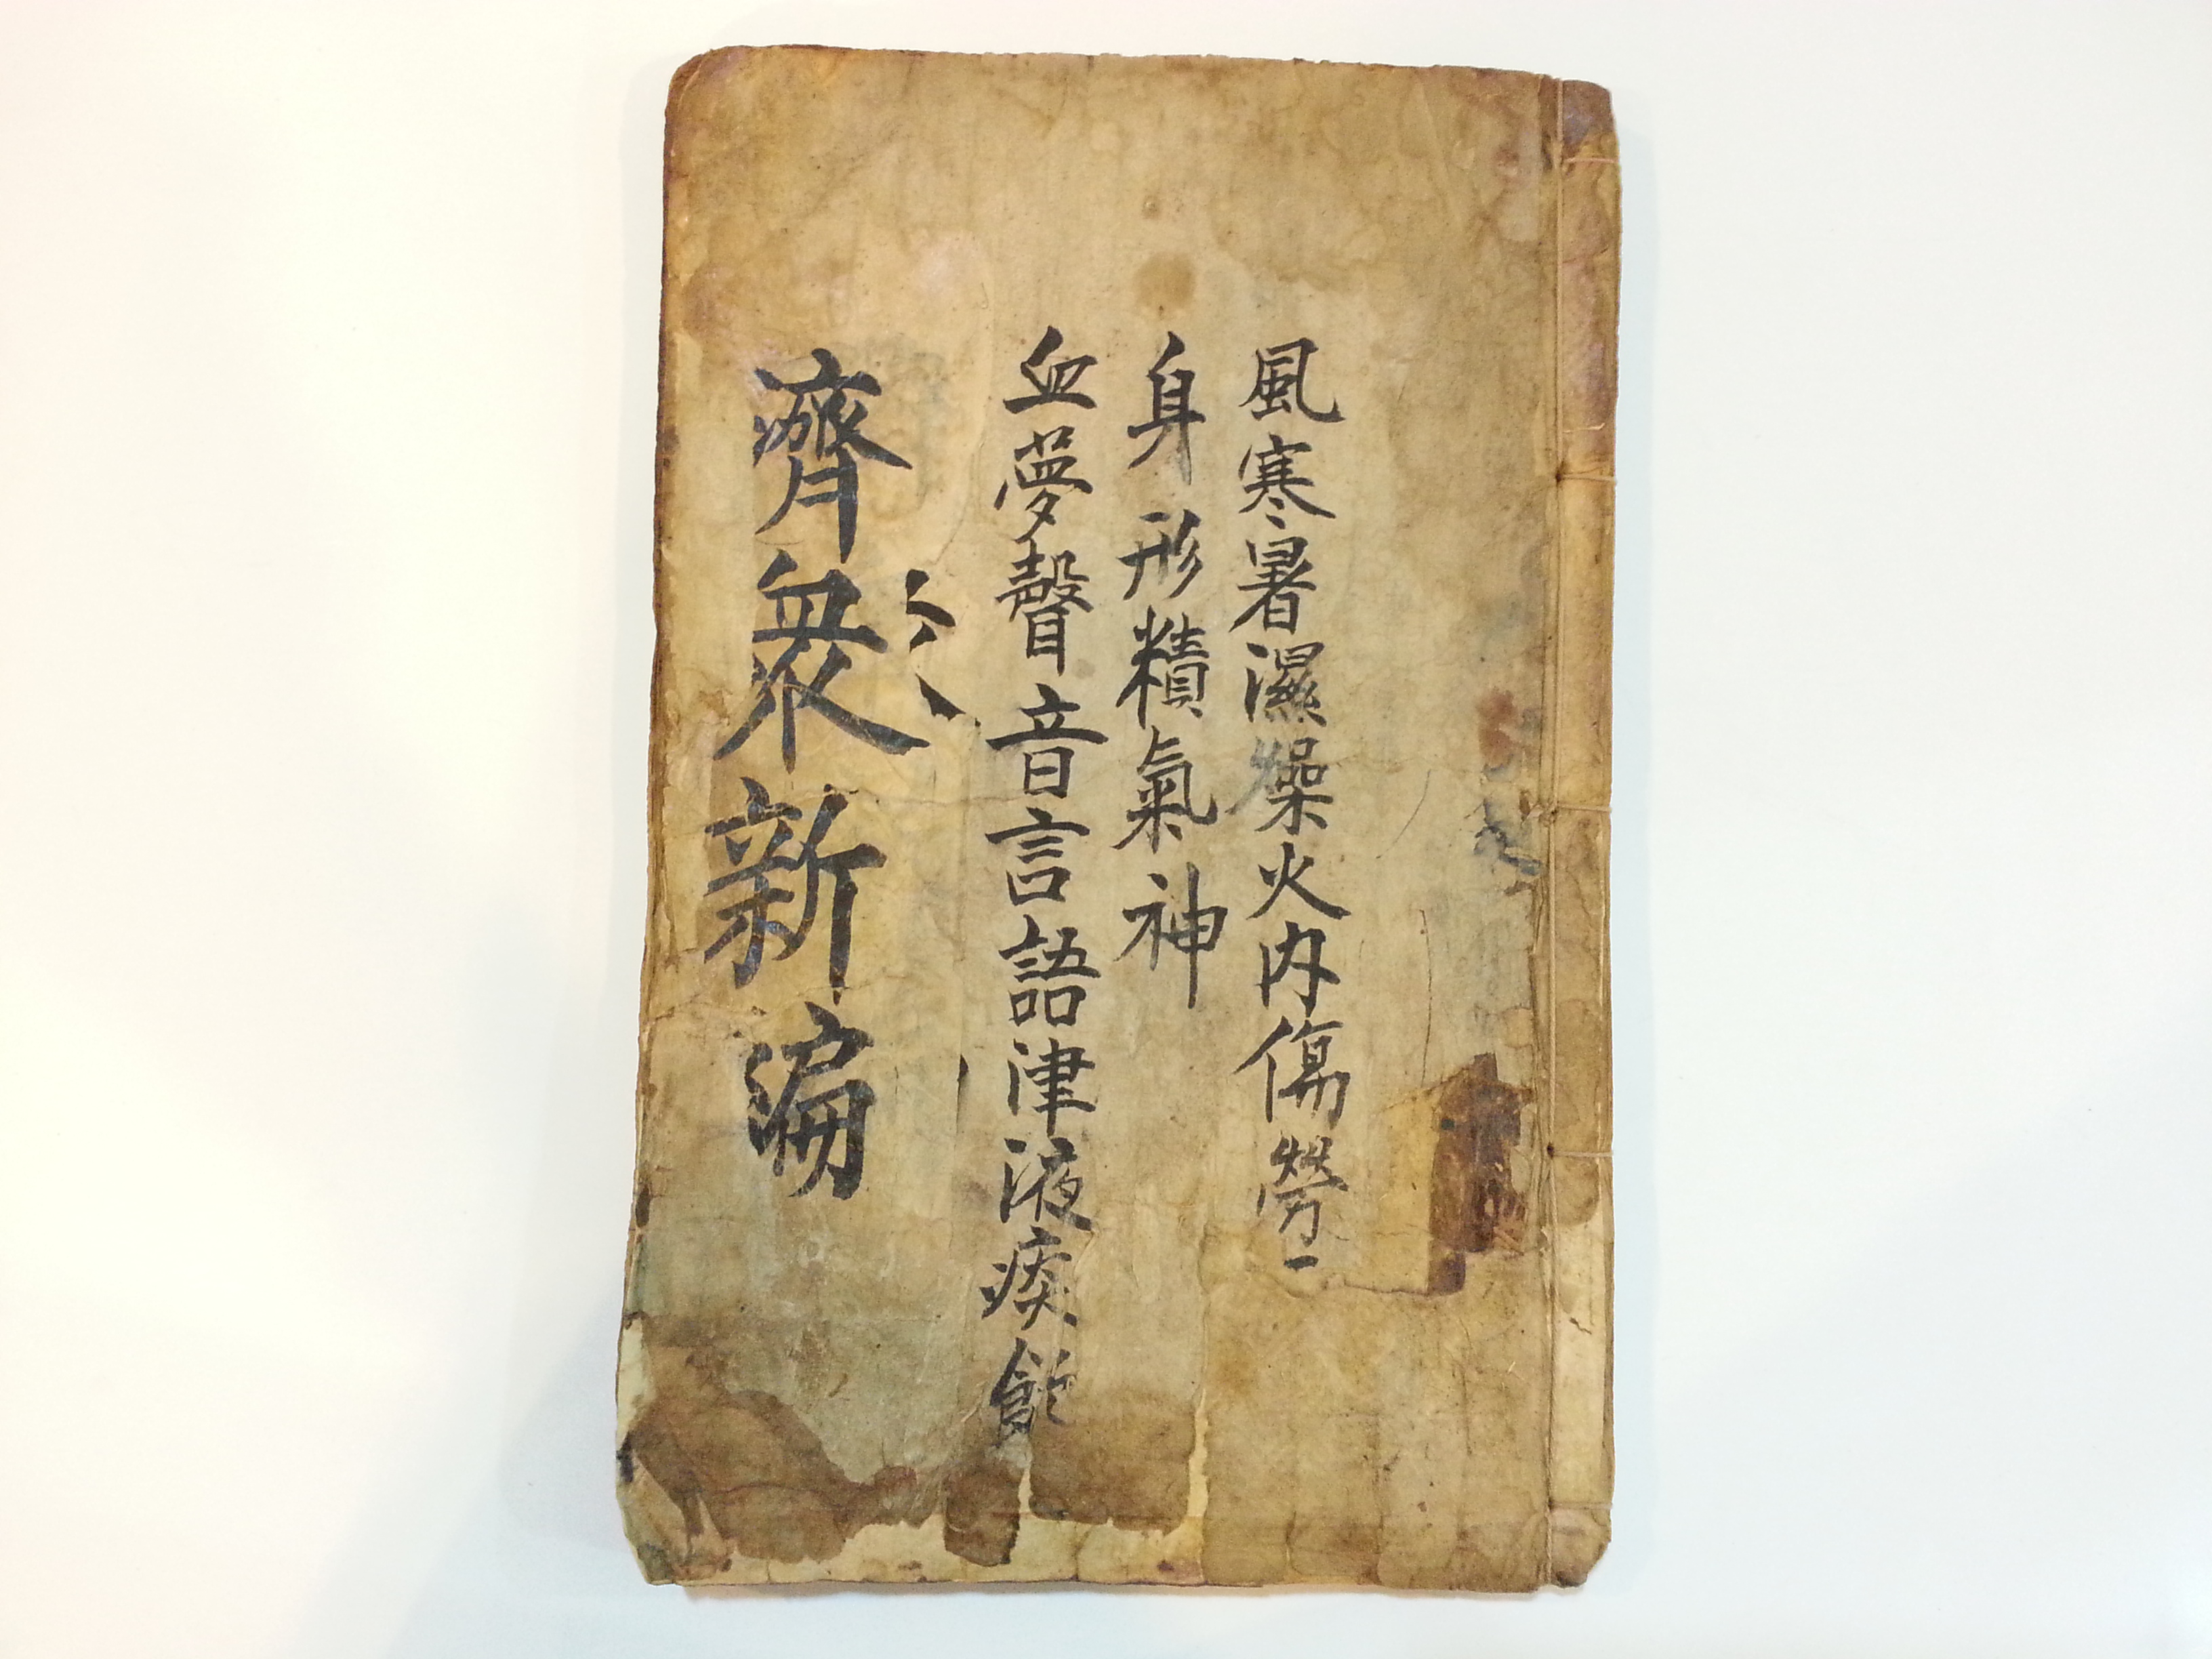 風寒暑濕燥火內傷勞一
身形精氣神
血夢聲音言語津液痰飮
濟衆新編